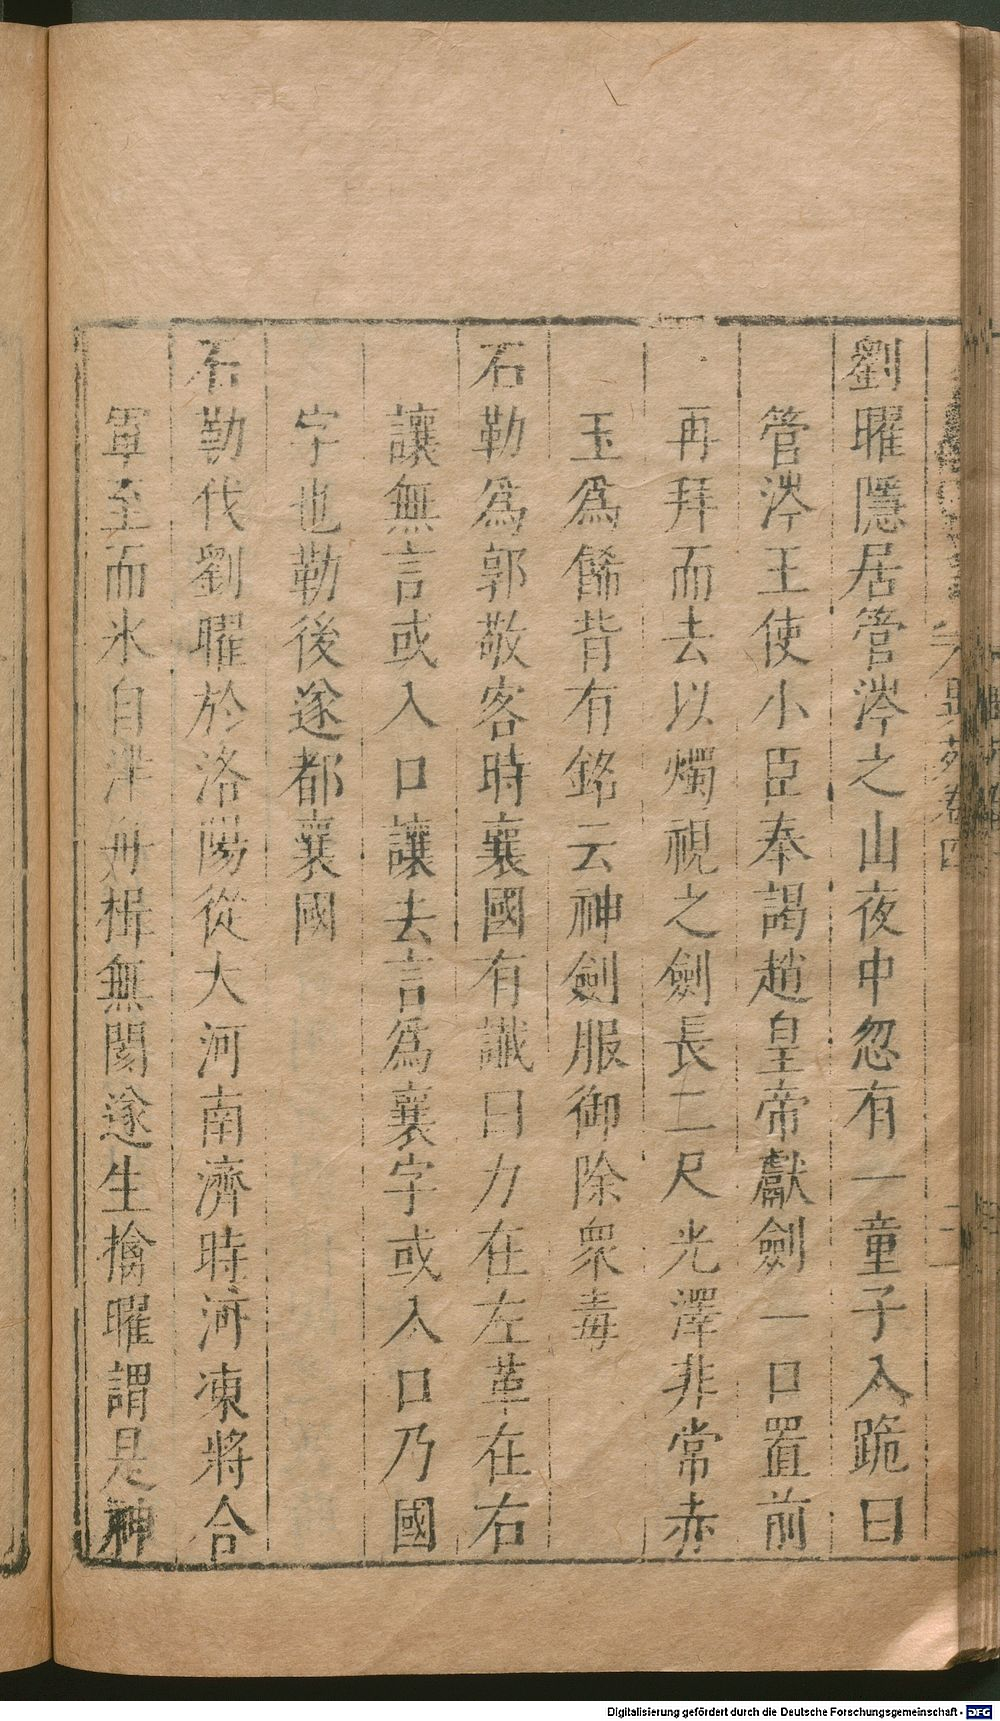 劉曜隱居管涔之山夜中忽有一童子入跪曰
管涔王使小臣奉謁趙皇帝獻劍一口置前
再拜而去以燭視之劍長二尺光澤非常赤
玉為餙背有銘云神劍服御除衆毒
石勒為郭敬客時襄國有讖曰力在左革在右
讓無言或入口讓去言為襄字或入口乃國
字也勒後遂都襄國
石勒伐劉曜於洛陽從大河南濟時河凍將合
軍至而氷自泮舟楫無閡遂生擒曜謂是神
異苑卷四
Digitalisierung gefördert durch die Deutsche Forschungsgemeinschaft - DFG